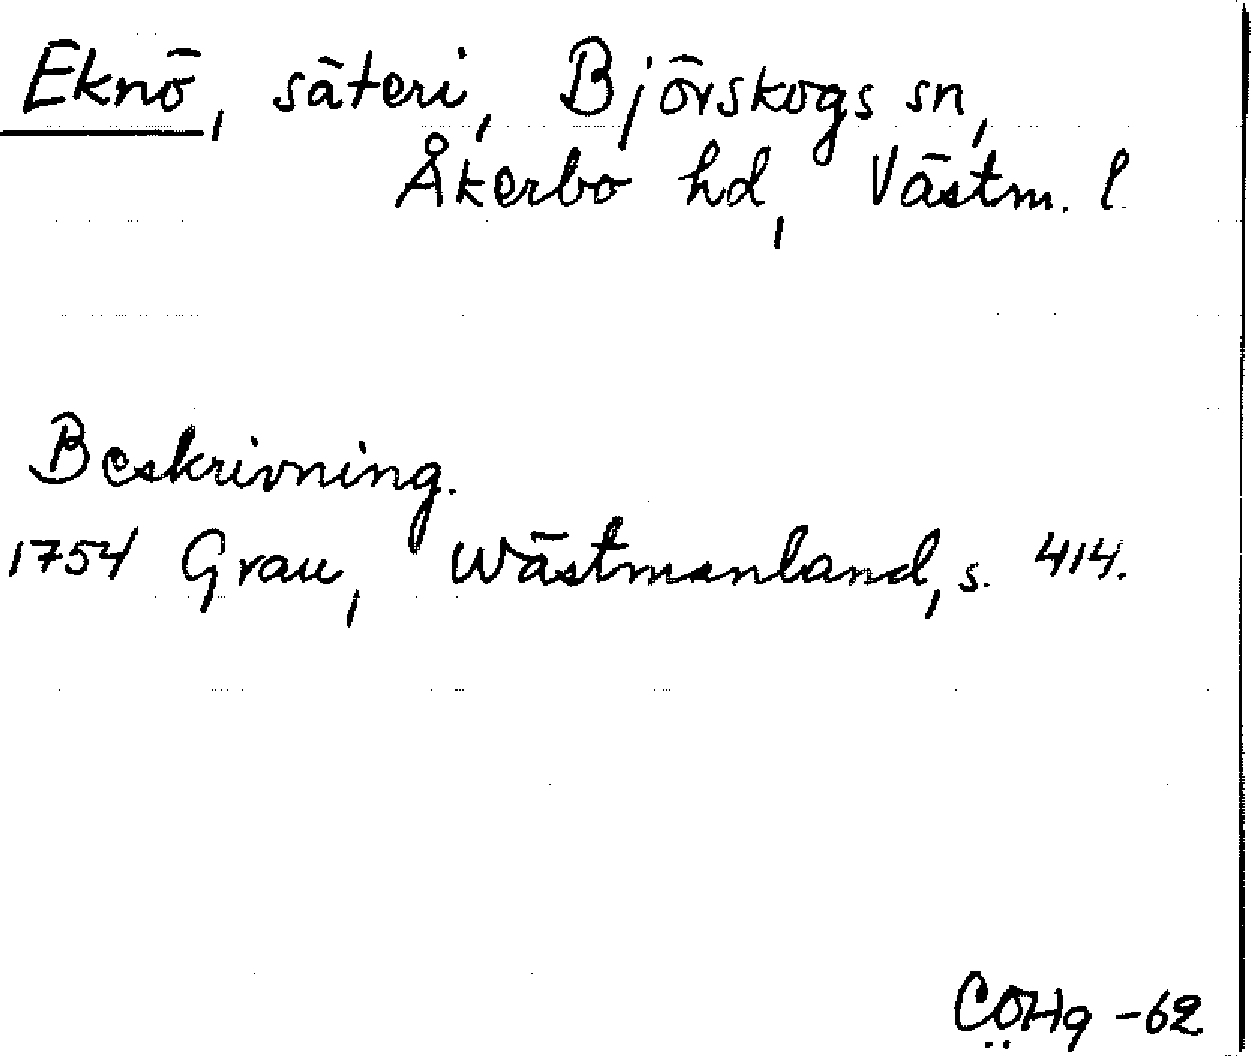 Eknö, säteri, Björskogs sn,
Åkerbo hd, Västm. l.
Beskrivning.
1754 Grau, Wästmanland, s. 414.
CÖHg -62